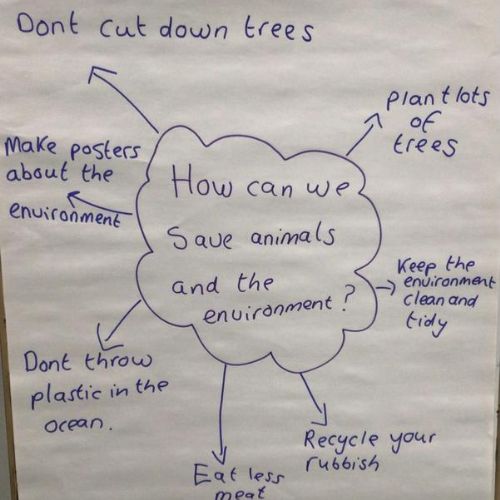 Dont cut down trees
plant lots
of
trees
Make posters
about the
environment
How can we
Save animals
and the
environment?
Keep the
environment
clean and
tidy
Dont throw
plastic in the
ocean.
Recycle your
rubbish
Eat less
meat